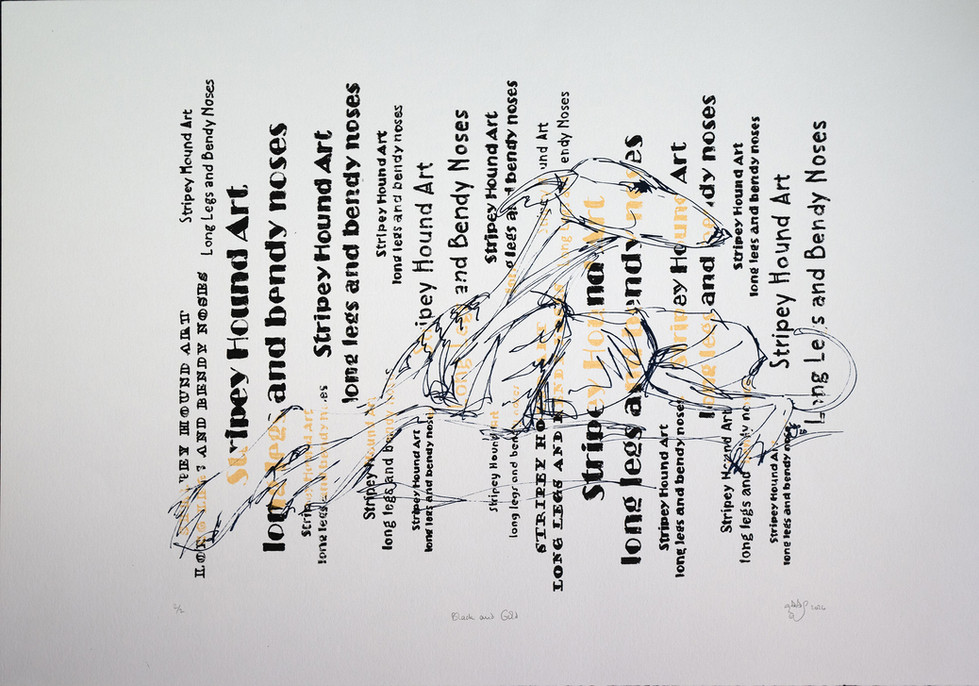 Stripey Hound Art
Long Legs and Bendy Noses
STRIPEY HOUND ART
LONG LEGS AND BENDY NOSES
Stripey Hound Art
long legs and bendy noses
Stripey Hound Art
long legs and bendy noses
Stripey Hound Art
long legs and bendy noses
Stripey Hound Art
long legs and bendy noses
Stripey Hound Art
long legs and bendy noses
Stripey Hound Art
long legs and bendy noses
Stripey Hound Art
Long Legs and Bendy Noses
Stripey Hound Art
long legs and bendy noses
Stripey Hound Art
long legs and bendy noses
Stripey Hound Art
Long Legs and Bendy Noses
STRIPEY HOUND ART
LONG LEGS AND BENDY NOSES
Stripey Hound Art
long legs and bendy noses
Stripey Hound Art
long legs and bendy noses
Stripey Hound Art
long legs and bendy noses
Stripey Hound Art
long legs and bendy noses
Stripey Hound Art
long legs and bendy noses
Stripey Hound Art
Long Legs and Bendy Noses
Stripey Hound Art
long legs and bendy noses
Black and Gold